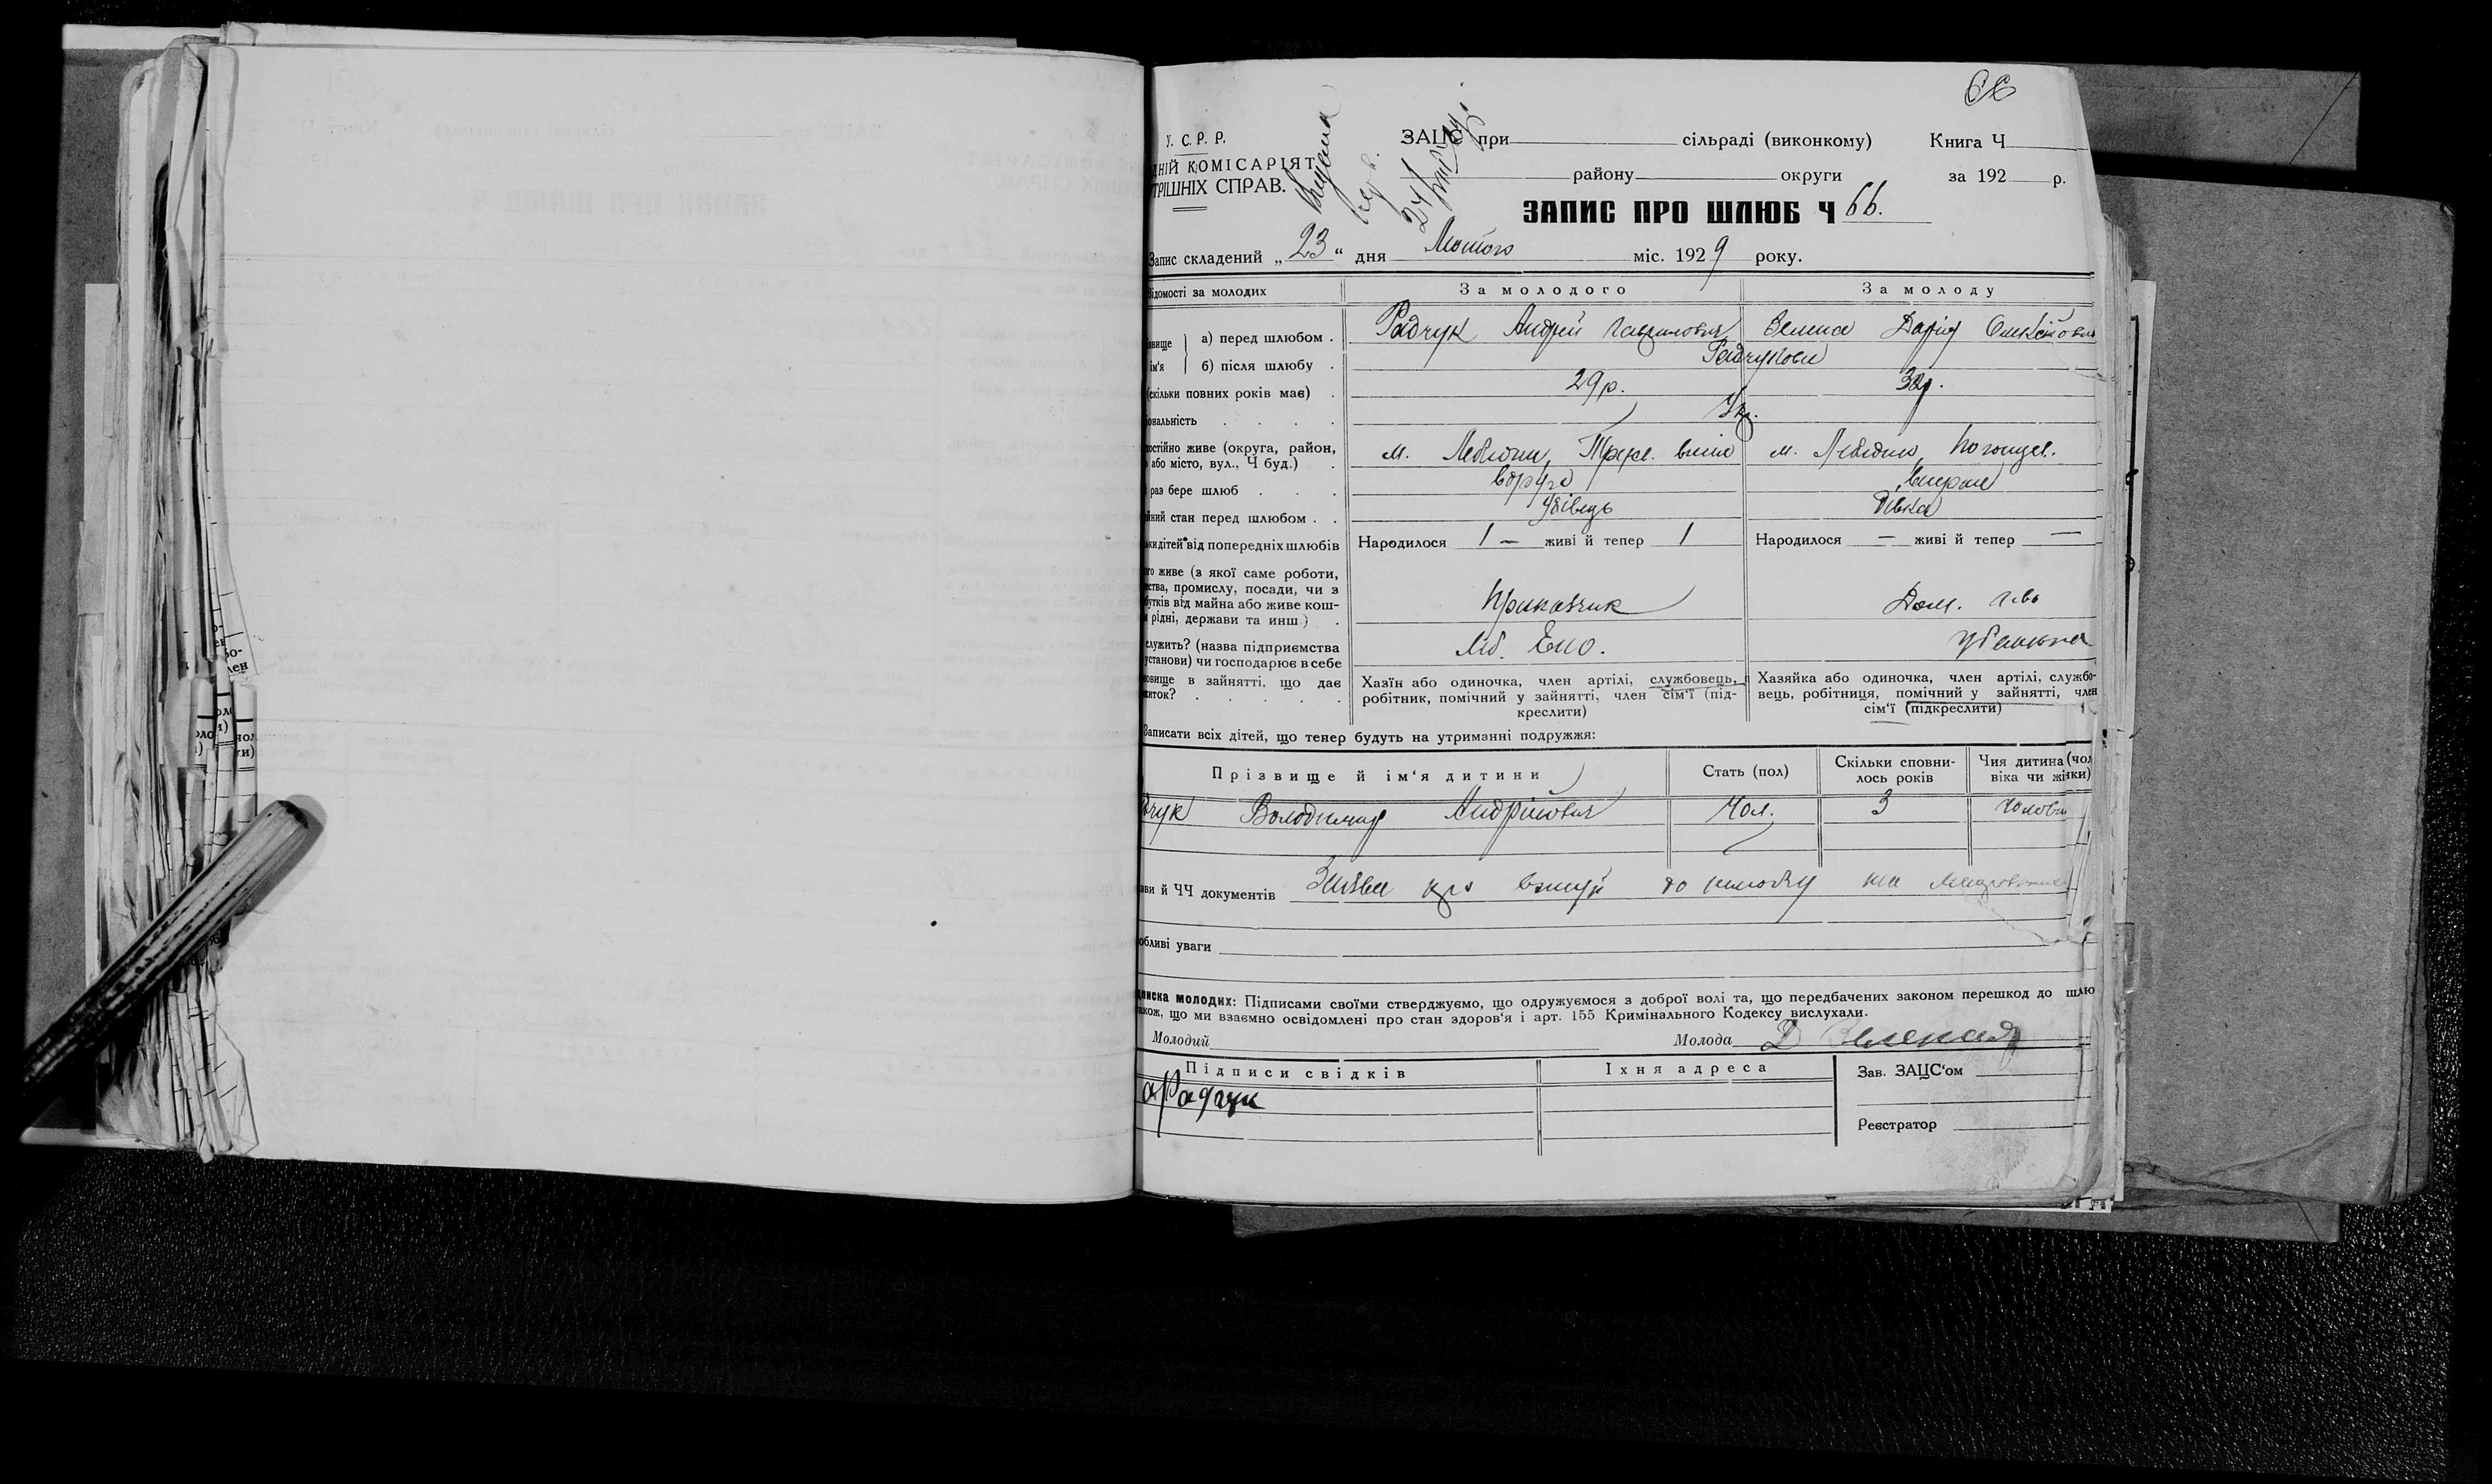 66
У. С. Р. Р.
ДНІЙ КОМІСАРІЯТ
ТРІШНІХ СПРАВ.
Видана
ЗАЦС при сільраді (виконкому) Книга Ч
району округи за 192 р.
ЗАПИС ПРО ШЛЮБ Ч 66.
Запис складений „23“ дня Лютого міс. 1929 року.
Відомості за молодих За молодого За молоду
звище а) перед шлюбом . Радчук Андрій Гаврилович Зелена Дарія Олексіовна
ім'я б) після шлюбу . Радчукови
(скільки повних років має) . 29 р. 32 р.
ональність . . . . Укр.
постійно живе (округа, район, м. Лебедин, м. Лебедин,
або місто, вул., Ч буд.) .
раз бере шлюб . . . вдруге вперше
йний стан перед шлюбом . . удівець дівка
ьки дітей від попередніх шлюбів Народилося 1 — живі й тепер 1 Народилося — живі й тепер —
ого живе (з якої саме роботи,
ства, промислу, посади, чи з
бутків від майна або живе кош-
и рідні, держави та инш.) . Приказчик Дом.
служить? (назва підприємства
установи) чи господарює в себе Ліб. Епо.
новище в зайнятті, що дає
житок? . . . . .
Хазїн або одиночка, член артілі, службовець,
робітник, помічний у зайнятті, член сім'ї (під-
креслити)
Хазяйка або одиночка, член артілі, службо-
вець, робітниця, помічний у зайнятті, член
сім'ї (підкреслити)
Записати всіх дітей, що тепер будуть на утриманні подружжя:
Прізвище й ім'я дитини Стать (пол) Скільки сповни-
лось років Чия дитина (чол
віка чи жінки)
дчук Володимир Андрійович Чол. 3 Чолов
ви й ЧЧ документів Заява про вступ до шлюбу
обливі уваги
дписка молодих: Підписами своїми стверджуємо, що одружуємося з доброї волі та, що передбачених законом перешкод до шлю
акож, що ми взаємно освідомлені про стан здоров'я і арт. 155 Кримінального Кодексу вислухали.
Молодий Молода Д Зеленая
Підписи свідків Їхня адреса Зав. ЗАЦС'ом
а Радчук
Реєстратор